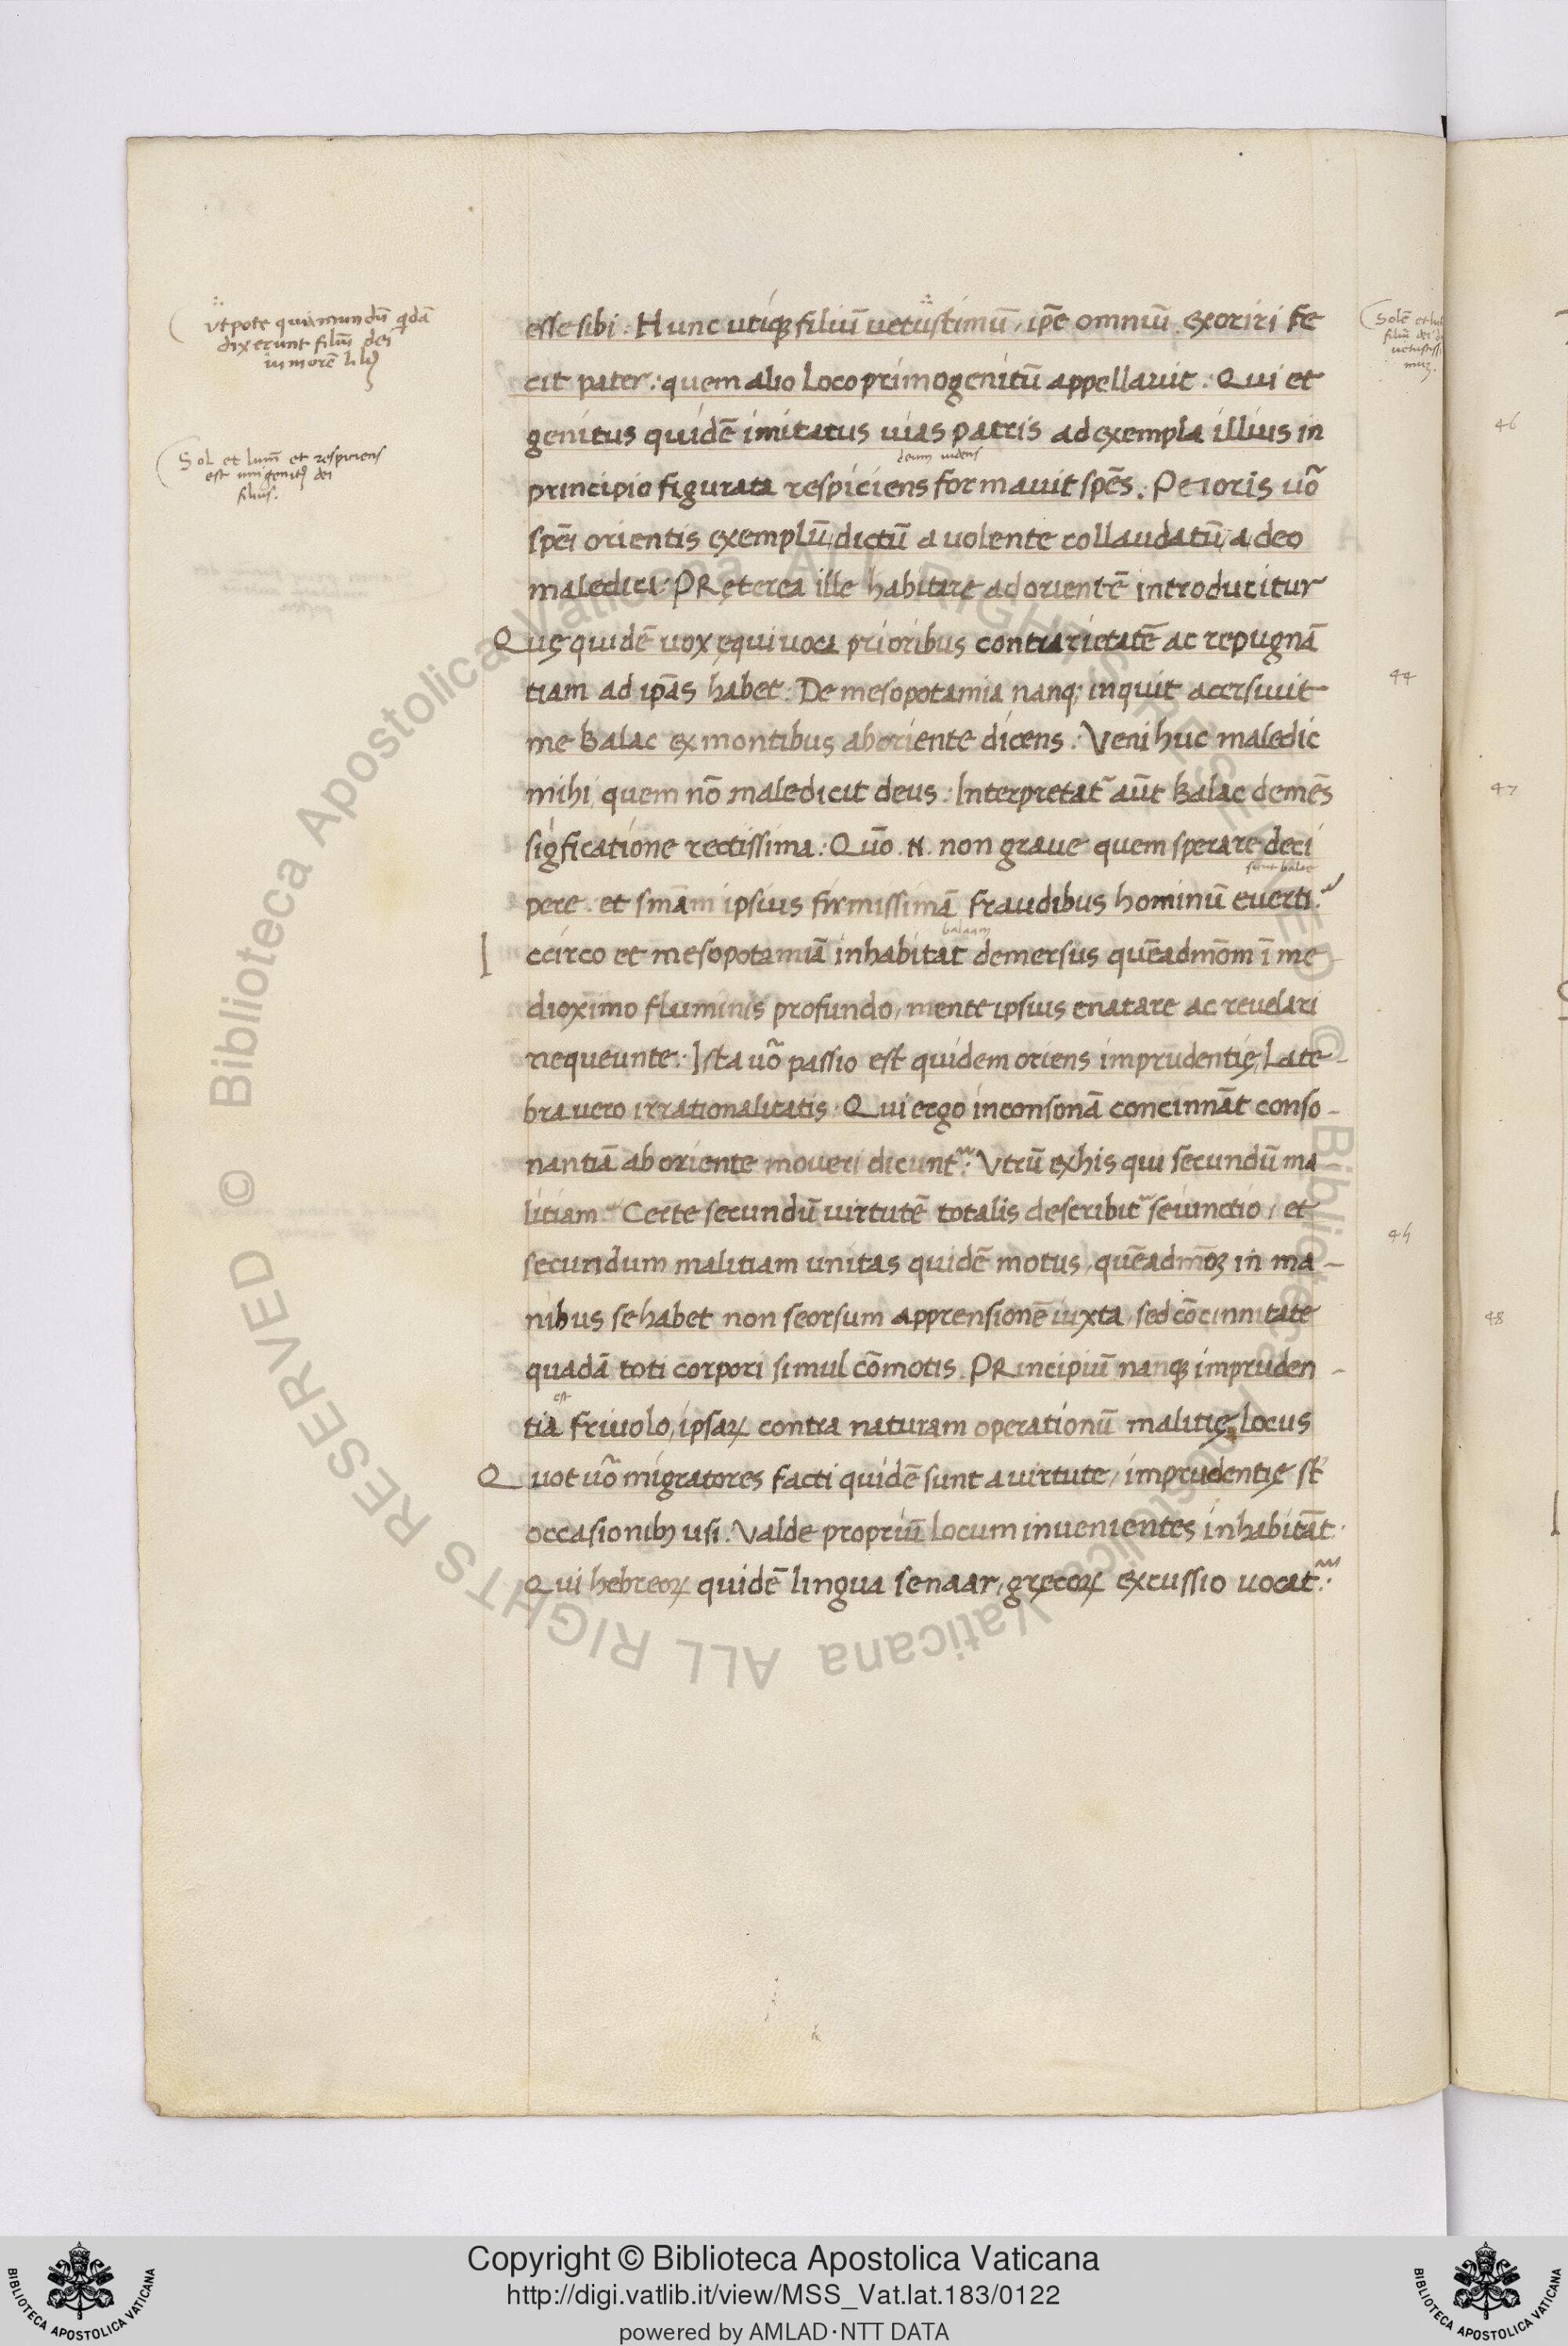 esse sibi : Hunc utiqꝫ filiū uetustimū, ip̄e omniū exoriri fe
cit pater : quem alio loco primogenitū appellauit : Qui et
genitus quidē imitatus uias patris ad exempla illius in
deum uidens
principio figurata respiciens formauit spēs : Petoris uō
spēi orientis exemplū, dictū a uolente collaudatū, a deo
maledici : PRęterea ille habitare ad orientē introducitur
Quę quidē uox ęquiuoca prioribus contrarietatē ac repugnā
tiam ad ip̄as habet : De mesopotamia nanqꝫ inquit acersiuit
me Balac ex montibus ab oriente dicens : Veni huc maledic
mihi, quem nō maledicit deus : Interpretat᷑ aūt Balac demēs
sigficatione rectissima : Quō .N. non graue quem sperare deci
sicut balac
pere et smām ipsius firmissimā fraudibus hominū euerti :
balaam
Iccirco et mesopotamiā inhabitat demersus quēadmōm ī me
dioximo fluminis profundo, mente ipsius enatare ac reuelari
nequeunte : Ista uō passio est quidem oriens imprudentię, Late-
bra uero irrationalitatis Qui ergo inconsonā concinnāt conso-
nantiā ab oriente moueri dicunt᷑ : Vtrū ex his qui secundū ma-
litiam Certe secundū uirtutē totalis describit᷑ seiunctio, et
secundum malitiam unitas quidē motus, quēadmōꝫ in ma-
nibus se habet non seorsum apprensionē iuxta, sed cōcinnitate
quadā toti corpori simul cōmotis PRincipiū nanqꝫ impruden-
est
tia friuolo, ipsaꝝ contra naturam operationū malitię locus
Quot uō migratores facti quidē sunt a uirtute, imprudentię st̄
occasionibꝫ usi . Valde propriū locum inuenientes inhabitāt.
Qui hebreoꝝ quidē lingua senaar, gręcoꝝ excussio uocat᷑ :
vtpote quia mundū qdā
dixerunt filiū dei
Sol et lum̄ et respiciens
est unigenitꝰ dei
filius.
Solē et
filiū dei
uetustiss
muꝫ.
46
44
47
45
48
Copyright © Biblioteca Apostolica Vaticana
http://digi.vatlib.it/view/MSS_Vat.lat.183/0122
powered by AMLAD·NTT DATA
BIBLIOTECA APOSTOLICA VATICANA
BIBLIOTECA APOSTOLICA VATICANA
© Biblioteca Apostolica Vaticana ALL RIGHTS RESERVED © Biblioteca Apostolica Vaticana ALL RIGHTS RESERVED